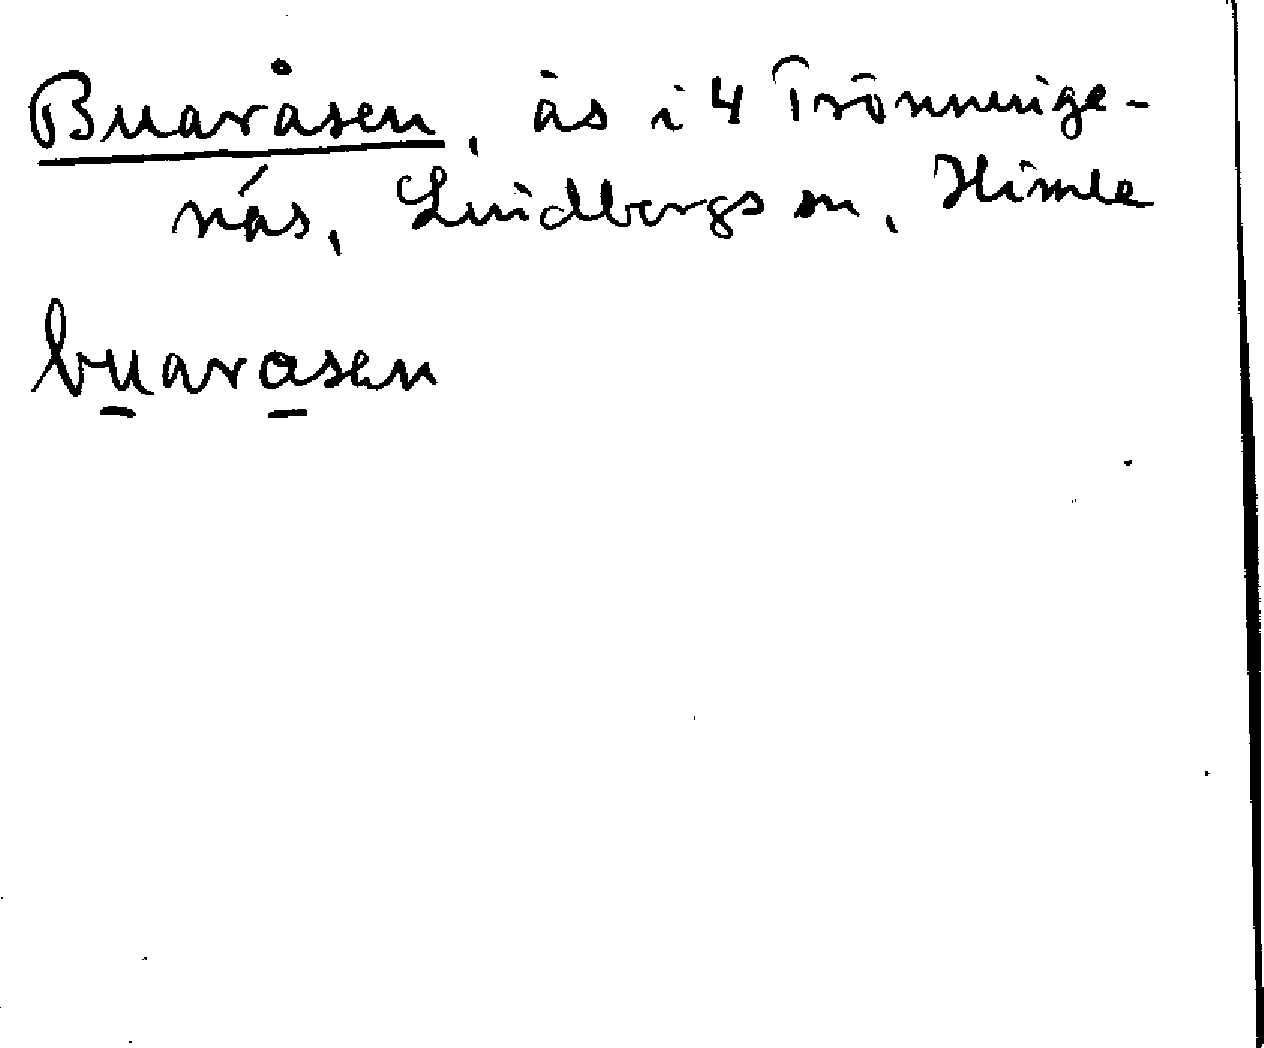 Buaråsen, ås i 4 Trönninge-
näs, Lindbergs sn, Himle
buarasen